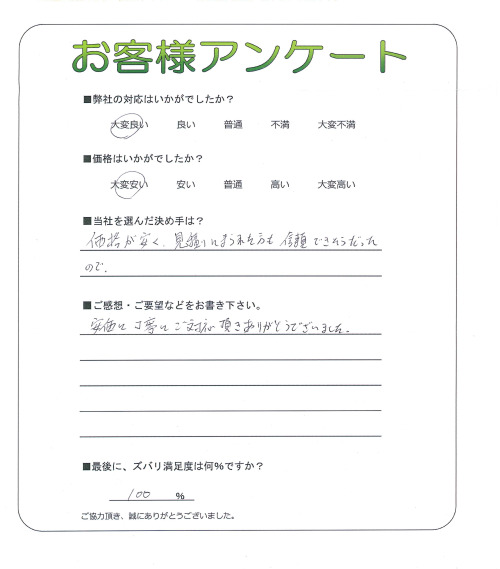 お客様アンケート
■弊社の対応はいかがでしたか？
大変良い 良い 普通 不満 大変不満
■価格はいかがでしたか？
大変安い 安い 普通 高い 大変高い
■当社を選んだ決め手は？
価格が安く、見積りに来られた方も信頼できそうだった
ので。
■ご感想・ご要望などをお書き下さい。
安価に丁寧にご対応頂きありがとうございました。
■最後に、ズバリ満足度は何%ですか？
100 %
ご協力頂き、誠にありがとうございました。